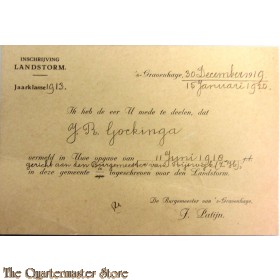 INSCHRIJVING
LANDSTORM.
Jaarklasse 1913.
's-Gravenhage, 30 December 1919
15 Januari 1920.
Ik heb de eer U mede te deelen, dat
J R Gockinga
vermeld in Uwe opgave van 11 Juni 1919
gericht aan den Burgemeester van
in deze gemeente is ingeschreven voor den Landstorm.
De Burgemeester van 's-Gravenhage,
J. Patijn.
The Quartermaster Store